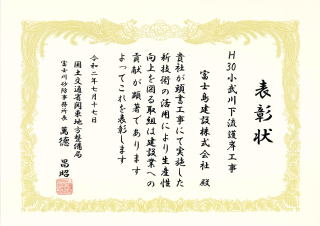 表彰状
H30小武川下流護岸工事
富士島建設株式会社 殿
貴社が頭書工事にて実施した
新技術の活用により生産性
向上を図る取組は建設業への
貢献が顕著であります
よってこれを表彰します
令和二年七月十七日
国土交通省関東地方整備局
富士川砂防事務所長 萬徳 昌昭